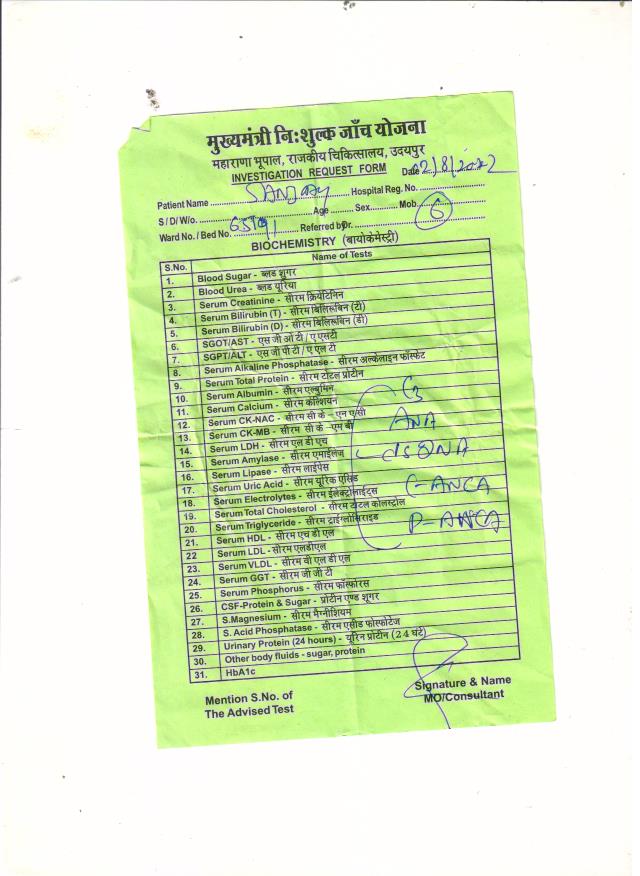 मुख्यमंत्री नि:शुल्क जाँच योजना
महाराणा भूपाल, राजकीय चिकित्सालय, उदयपुर
INVESTIGATION REQUEST FORM Date 02/8/2022
Patient Name SANJAY Hospital Reg. No.
S / D/ W/o. Age Sex Mob.
Ward No. / Bed No. Referred by Dr. 6
BIOCHEMISTRY (बायोकेमेस्ट्री)
S.No. Name of Tests
1. Blood Sugar - ब्लड शूगर
2. Blood Urea - ब्लड यूरिया
3. Serum Creatinine - सीरम क्रियेटिनिन
4. Serum Bilirubin (T) - सीरम बिलिरूबिन (टी)
5. Serum Bilirubin (D) - सीरम बिलिरूबिन (डी)
6. SGOT/AST - एस जी ओ टी / ए एसटी
7. SGPT/ALT - एस जी पी टी / ए एल टी
8. Serum Alkaline Phosphatase - सीरम अल्केलाइन फॉस्फेट
9. Serum Total Protein - सीरम टोटल प्रोटीन
10. Serum Albumin - सीरम एल्बुमिन
11. Serum Calcium - सीरम कैल्शियम C3
12. Serum CK-NAC - सीरम सी के – एन ए/सी
13. Serum CK-MB - सीरम सी के –एम बी ANA
14. Serum LDH - सीरम एल डी एच
15. Serum Amylase - सीरम एमाईलेज dsDNA
16. Serum Lipase - सीरम लाईपेस
17. Serum Uric Acid - सीरम यूरिक एसिड
18. Serum Electrolytes - सीरम ईलेक्ट्रोलाईट्स C-ANCA
19. Serum Total Cholesterol - सीरम टोटल कोलस्ट्रोल
20. Serum Triglyceride - सीरम ट्राईग्लोसिराइड P-ANCA
21. Serum HDL - सीरम एच डी एल
22. Serum LDL - सीरम एलडीएल
23. Serum VLDL - सीरम वी एल डी एल
24. Serum GGT - सीरम जी जी टी
25. Serum Phosphorus - सीरम फॉस्फोरस
26. CSF-Protein & Sugar - प्रोटीन एण्ड शूगर
27. S.Magnesium - सीरम मैग्नीशियम
28. S. Acid Phosphatase - सीरम एसीड फोस्फोटेज
29. Urinary Protein (24 hours) - यूरिन प्रोटीन (24 घंटे)
30. Other body fluids - sugar, protein
31. HbA1c
Mention S.No. of
The Advised Test
Signature & Name
MO/Consultant